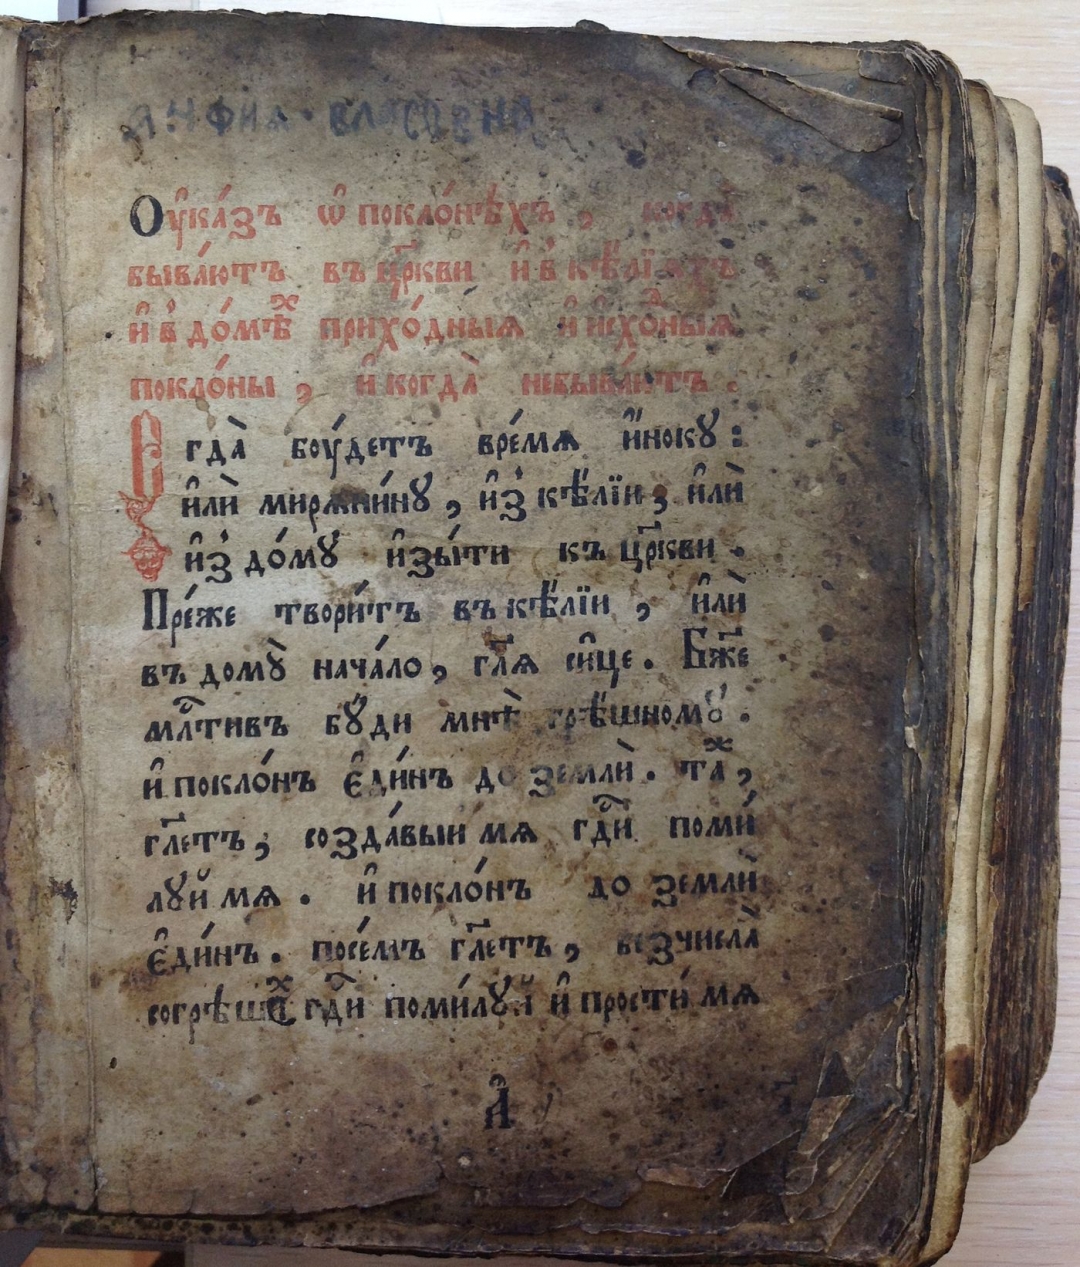 АНФИЯ ВЛАСОВНА
Оу҆ка́зъ ѡ҆ покло́нѣхъ, когда̀
быва́ютъ въ цр҃кви и҆ в҆ кѣ́лїѧхъ
и҆ в҆ до́мѣⷯ прихо́дныѧ и҆ и҆схо́ⷣныѧ
покло́ны, и҆ когда̀ небыва́ютъ.
Егда̀ боу́детъ вре́мѧ и҆́нокꙋ:
и҆лѝ мирѧни́нꙋ, и҆з̾ кѣ́лїи, и҆лѝ
и҆з̾ до́мꙋ и҆зы́ти къ цр҃кви.
Пре́же твори́тъ въ кѣ́лїи, и҆лѝ
въ домꙋ̀ нача́ло, гл҃ѧ си́це. Бж҃е
млⷭ҇тивъ бꙋ́ди мнѣ̀ грѣ́шномꙋ.
и҆ покло́нъ є҆ди́нъ до землѝ. таⷤ,
гл҃етъ, созда́выи мѧ гдⷭ҇и поми́
лꙋй мѧ. и҆ покло́нъ до землѝ
є҆ди́нъ. посе́мъ гл҃етъ, безчисла̀
согрѣшиⷯ гдⷭ҇и поми́лꙋй и҆ прости́ мѧ
а҃